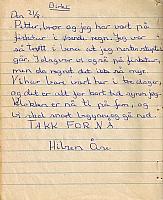 Dirke
Den 21/8
Petter, bror og jeg har vært på
fisketur i dårlig regn. Jeg var
så trøtt i bena at jeg nesten
går. Idag var vi også på fisketur,
men da regnet det ikke så mye.
Vi har bare vært her i tre dager,
og det er alt for kort tid synes jeg.
Klokken er nå ti på fem, og
vi skal snart
TAKK FOR NÅ
Hilsen Åse